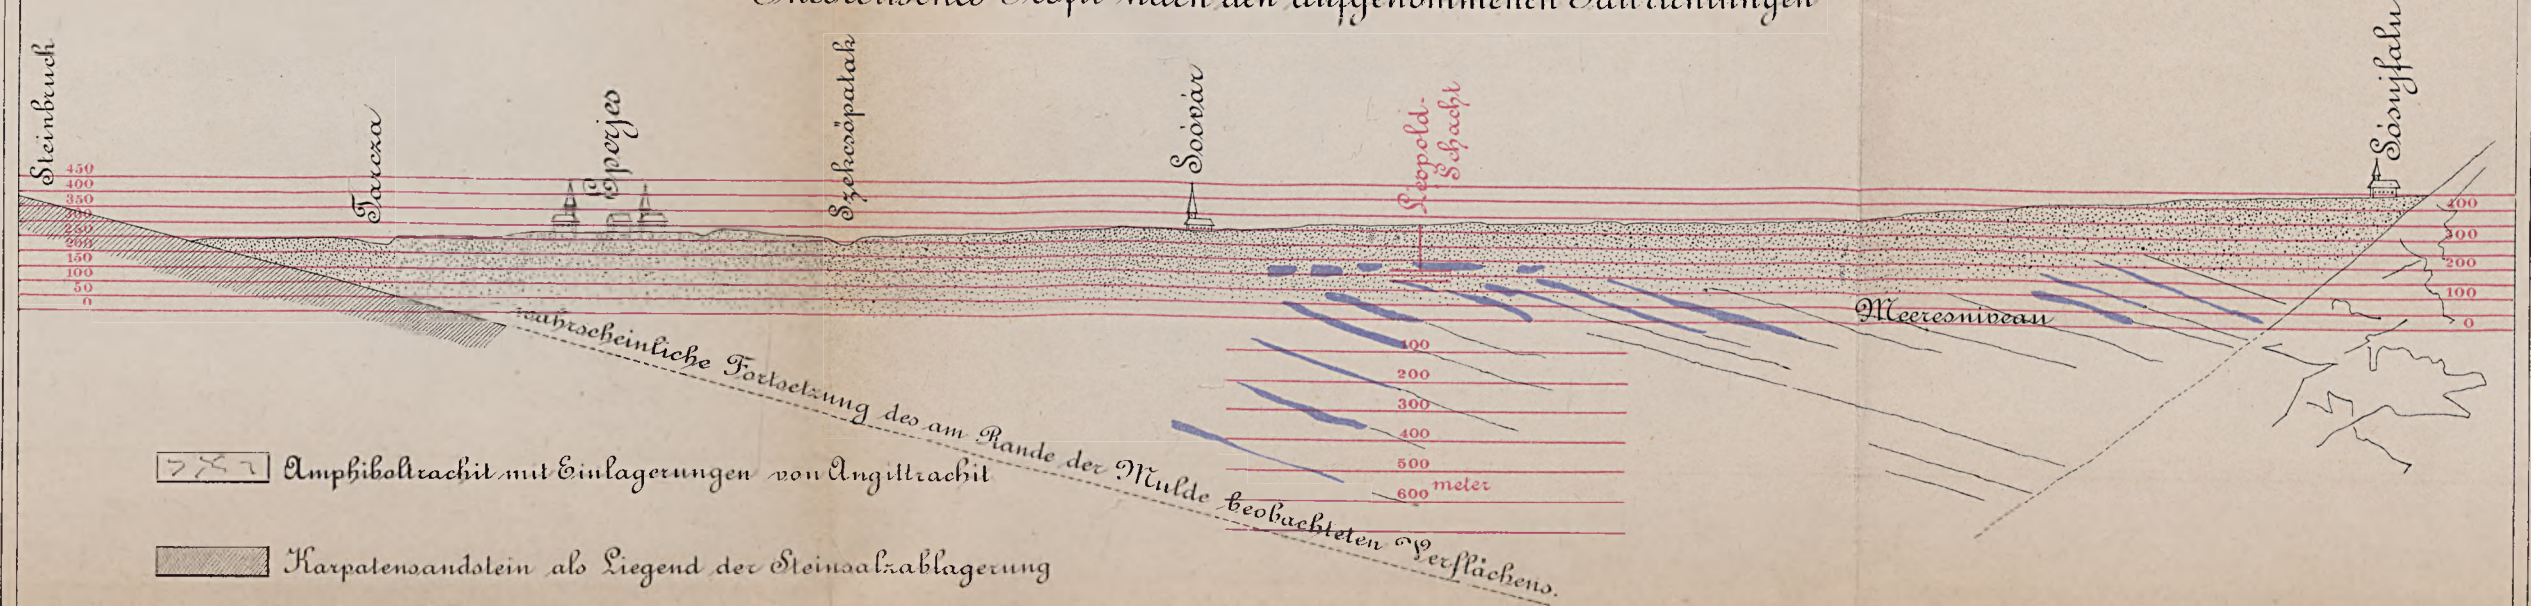 Theoretisches Profil nach den aufgenommenen Fallrichtungen
Steinbruch
Tarcza
Eperjes
Szekcsöpatak
Soóvár
Leopold-
Schacht
Sósujfalu
450
400
350
300
250
200
150
100
50
0
400
300
200
100
0
Meeresniveau
100
200
300
400
500
600 meter
wahrscheinliche Fortsetzung des am Rande der Mulde beobachteten Verflächens.
Amphiboltrachit mit Einlagerungen von Angittrachit
Karpatensandstein als Liegend der Steinsalzablagerung